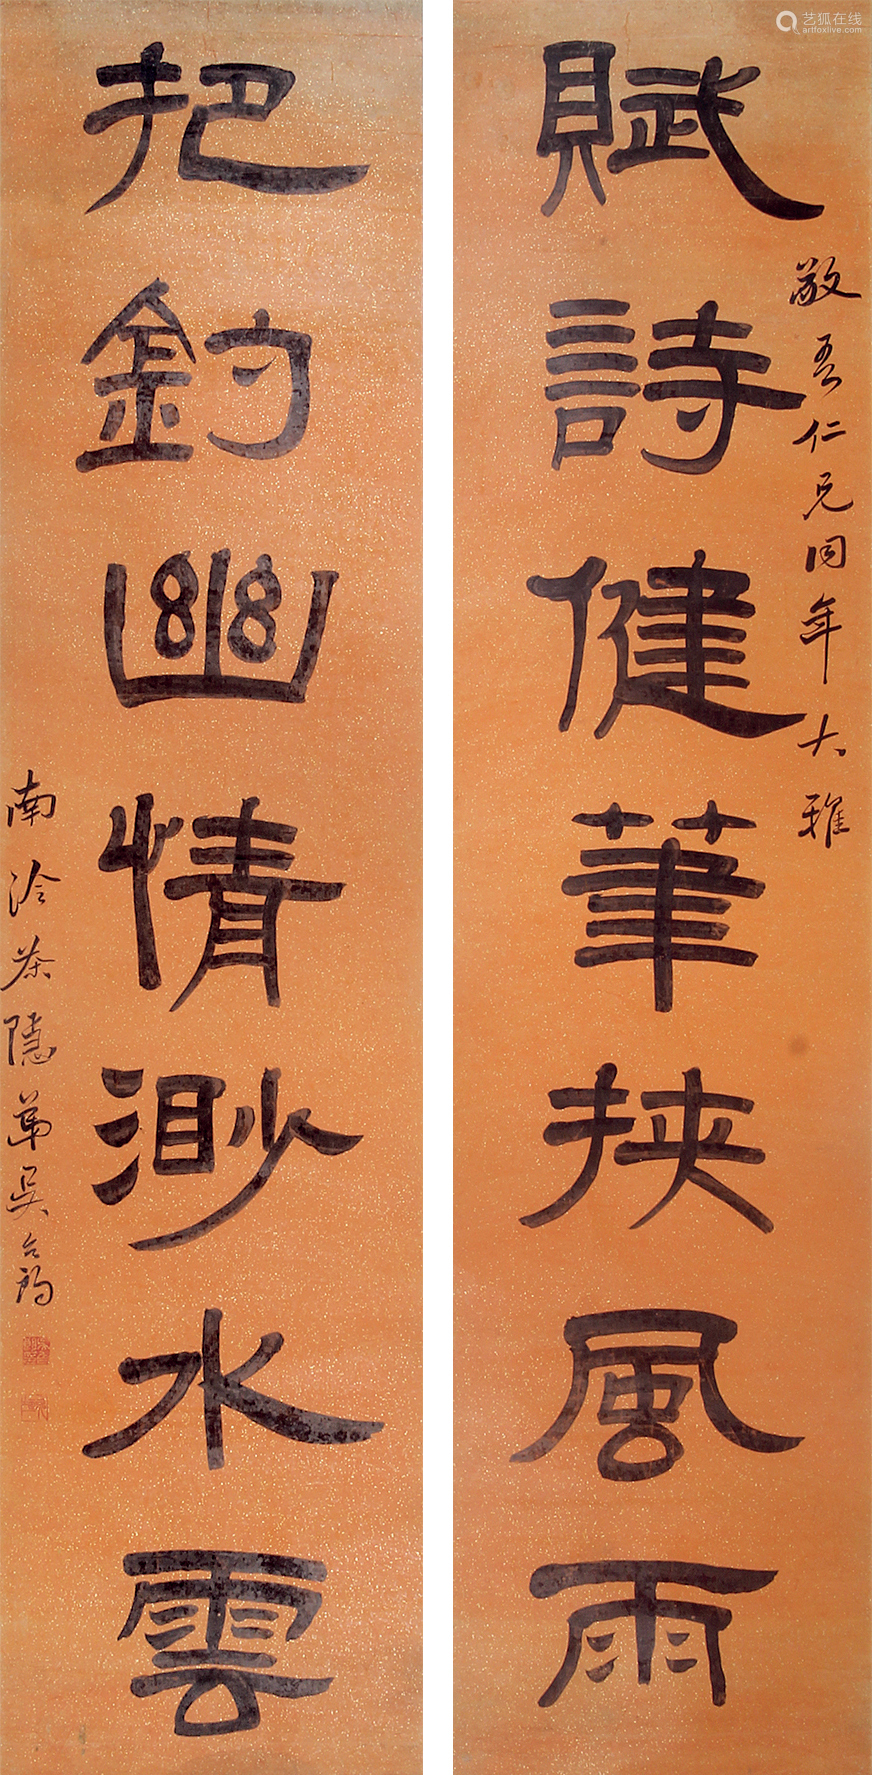 賦詩健筆挾風雨
敬吾仁兄同年大雅
把釣幽情渺水雲
南泠茶隱弟吳
艺狐在线
artfoxlive.com